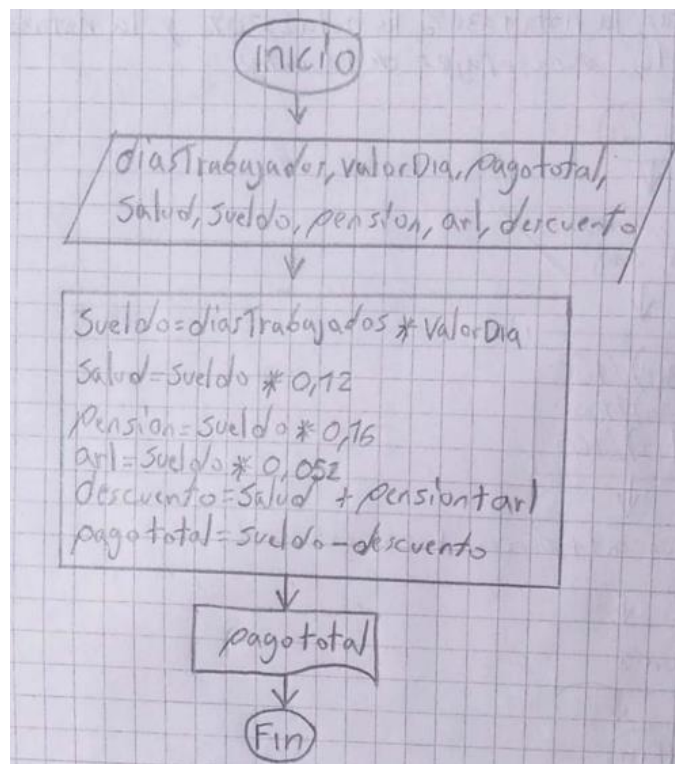 inicio
diasTrabajados, valorDia, pagototal,
Salud, sueldo, pension, arl, descuento
Sueldo=diasTrabajados * valorDia
Salud=Sueldo * 0,12
Pension=Sueldo * 0,16
arl=Sueldo * 0,052
descuento=Salud + pension+arl
pagototal=sueldo-descuento
pagototal
Fin